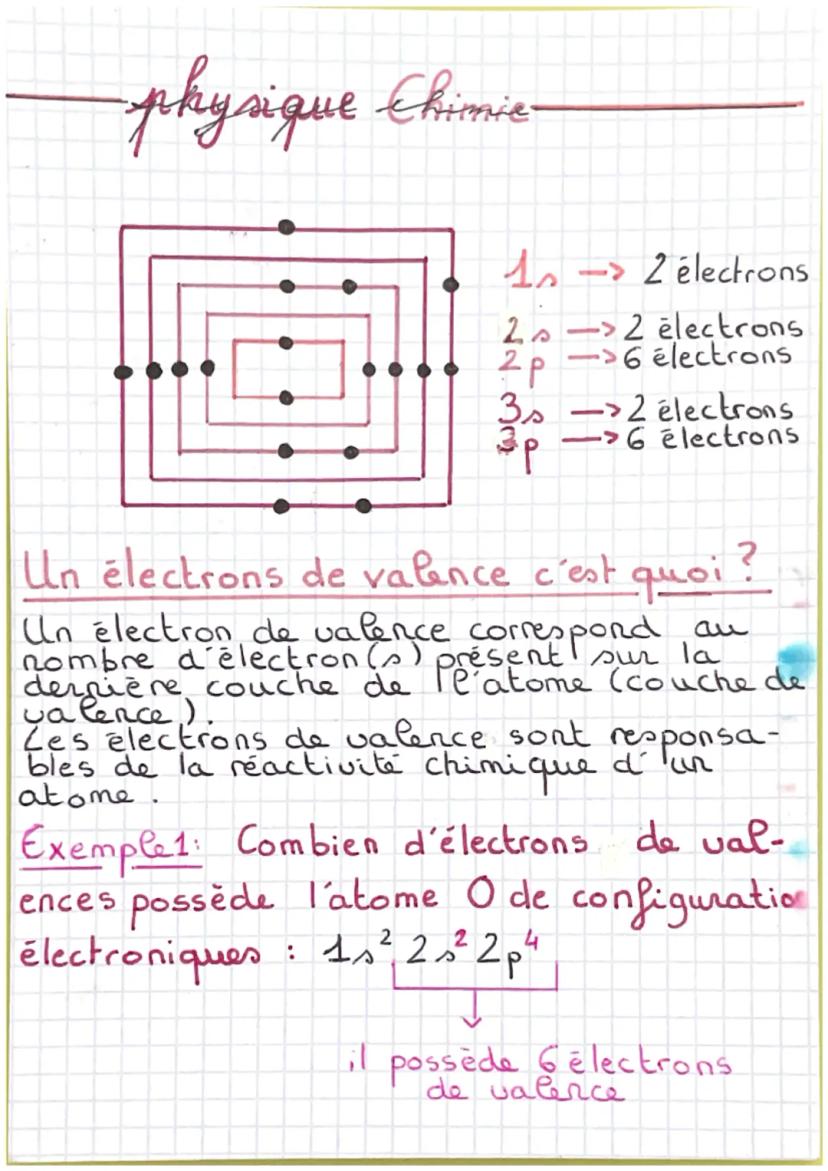 physique Chimie
1s -> 2 électrons
2s -> 2 électrons
2p -> 6 électrons
3s -> 2 électrons
3p -> 6 électrons
Un électrons de valence c'est quoi ?
Un électron de valence correspond au
nombre d'électron(s) présent sur la
dernière couche de l'atome (couche de
valence).
Les électrons de valence sont responsa-
bles de la réactivité chimique d'un
atome.
Exemple1: Combien d'électrons de val-
ences possède l'atome O de configuratio
électroniques : 1s² 2s² 2p⁴
il possède 6 électrons
de valence